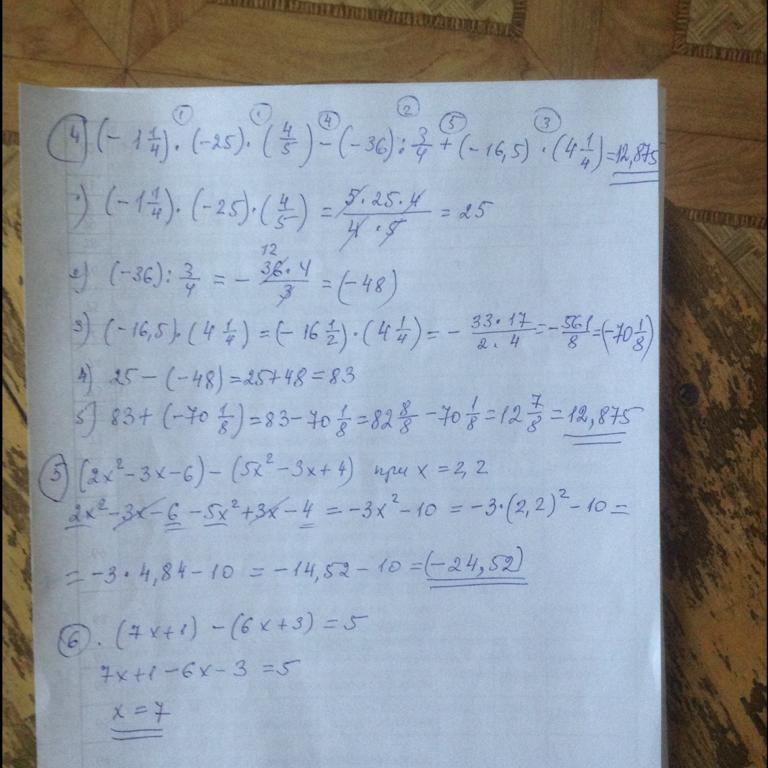 ④ (-1 1/4)·(-25)·(4/5) - (-36) : 3/4 + (-16,5)·(4 1/4) = 12,875
1) (-1 1/4)·(-25)·(4/5) = 5·25·4/4·5 = 25
2) (-36) : 3/4 = - 36·4/3 = (-48)
3) (-16,5)·(4 1/4) = (-16 1/2)·(4 1/4) = - 33·17/2·4 = - 561/8 = (-70 1/8)
4) 25 - (-48) = 25+48 = 83
5) 83 + (-70 1/8) = 83 - 70 1/8 = 82 8/8 - 70 1/8 = 12 7/8 = 12,875
⑤ (2x² - 3x - 6) - (5x² - 3x + 4) при x = 2,2
2x² - 3x - 6 - 5x² + 3x - 4 = -3x² - 10 = -3·(2,2)² - 10 =
= -3·4,84 - 10 = -14,52 - 10 = (-24,52)
⑥. (7x+1) - (6x+3) = 5
7x+1-6x-3 = 5
x = 7